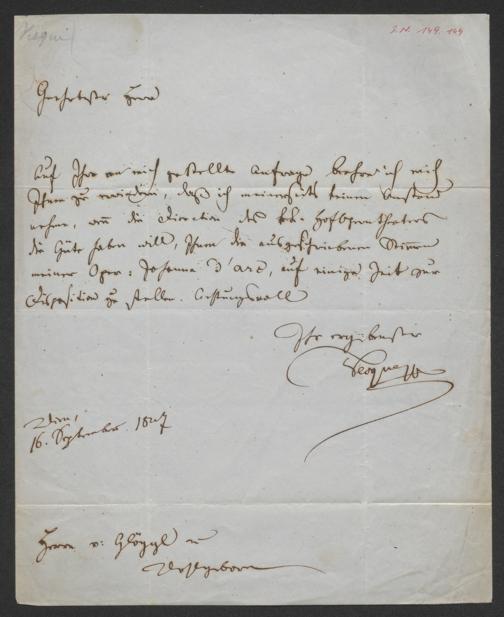 I.N. 149.149
Geehrtester Herr
Auf Ihre an mich gestellte Anfrage beehre ich mich
Ihnen zu erwiedern, daß ich meinerseits keinen Anstand
nehme, wenn die Direction des k.k. Hofoperntheaters
die Güte haben will, Ihnen die ausgeschriebenen Stimmen
meiner Oper: Johanna d'arc, auf einige Zeit zur
Disposition zu stellen. Achtungsvoll
Ihr ergebenster
Vesque
Wien,
16. September 1847
Herrn v: Glöggl
Wohlgeboren